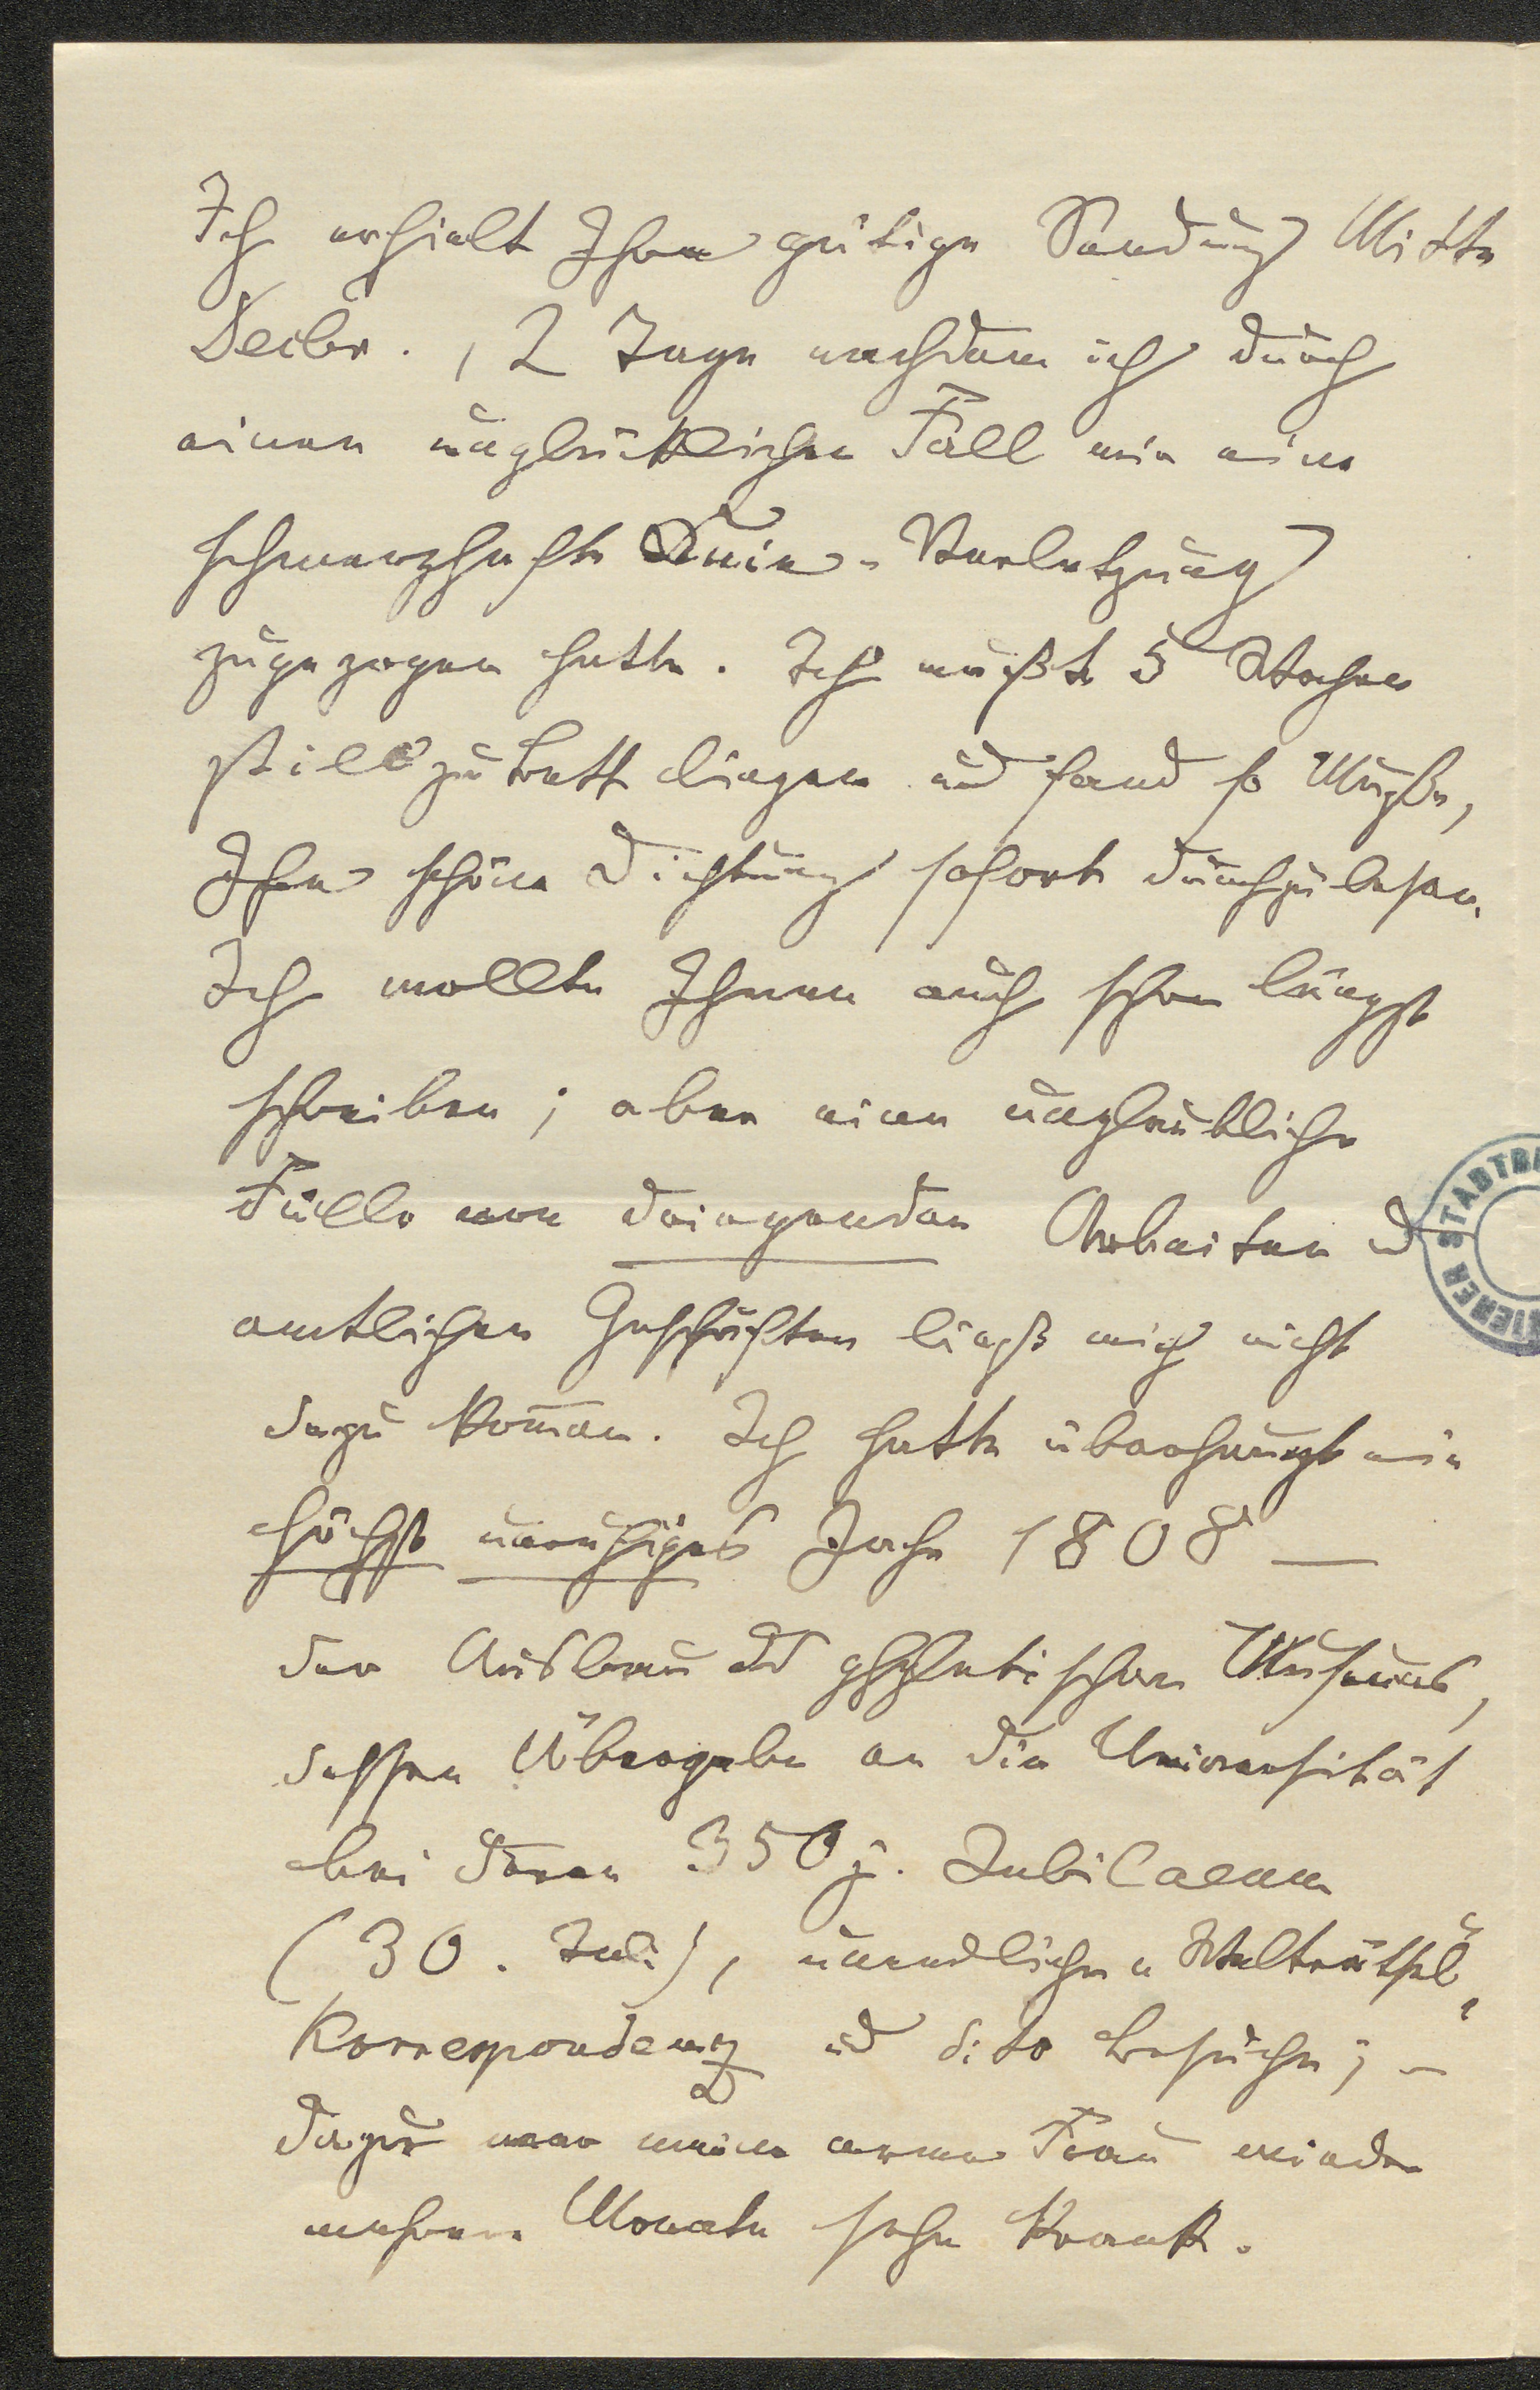 Ich erhielt Ihre gütige Sendung Mitte
Decbr., 2 Tage nachdem ich durch
einen unglücklichen Fall mir eine
schmerzhafte Knie-Verletzung
zugezogen hatte. Ich mußte 5 Wochen
still zu Bett liegen und fand so Muße,
Ihre schöne Dichtung sofort durchzulesen.
Ich wollte Ihnen auch schon längst
schreiben; aber eine unglaubliche
Fülle von dringenden Arbeiten u
amtlichen Geschäften ließ mich nicht
dazu kom̄en. Ich hatte überhaupt ein
höchst unruhiges Jahr 1808 —
der Ausbau des phyletischen Museums,
dessen Übergabe an die Universität
bei deren 350 j. Jubilaeum
(30. Juli), unendliche „Welträtsel“
Korrespondenz und dito Besuche; –
dazu war meine arme Frau wieder
mehrere Monate sehr krank.
WIENER STADTBI